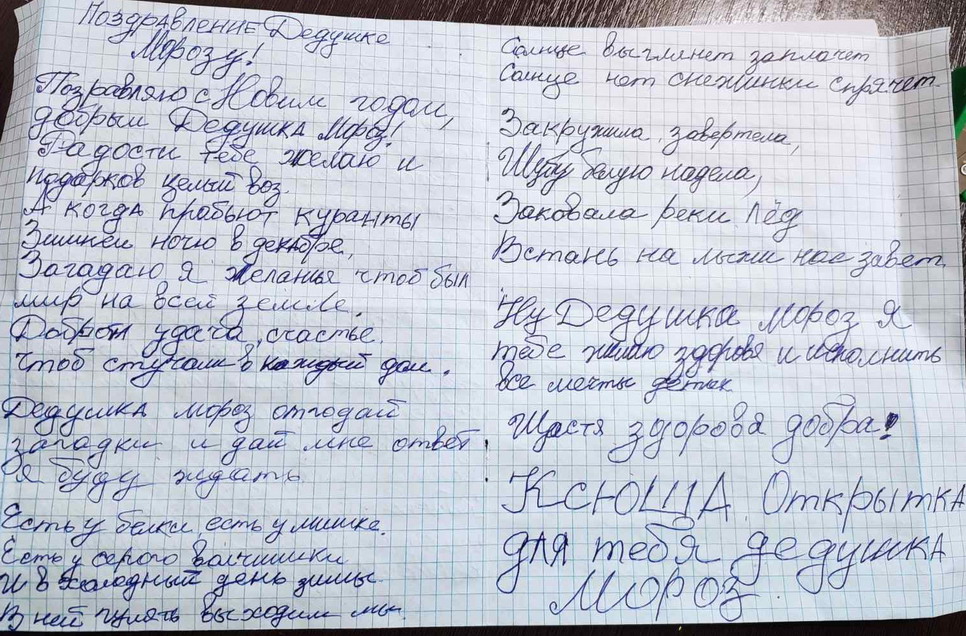 Поздравление Дедушке
Морозу!
Позравляю с Новим годом,
добрый Дедушка Мороз!
Радости тебе желаю и
подарков целый воз.
А когда прабьют куранты
Зимней ночю в декабре,
Загадаю я желанье чтоб был
мир на всей земле.
Доброта удача, счастье.
чтоб стучали в каждый дом.
Дедушка мороз отгодай
загадки и дай мне ответ
я буду ждать
Есть у белки, есть у мишке.
Есть у серого волчишики
И в холодный день зимы
В ней гулять выходим мы.
Солнце выгленет заплачет
Солнце нот снежинки спрячет.
Закружила, завертела,
Шубу белую надела,
Заковала реки Лёд
Встань на лыжи нас завет.
Ну Дедушка мороз я
тебе жилаю здоровя и исполнить
все мечты деток
Щастя здорова добра!
Ксюша Открытка
для тебя дедушка
Мороз.